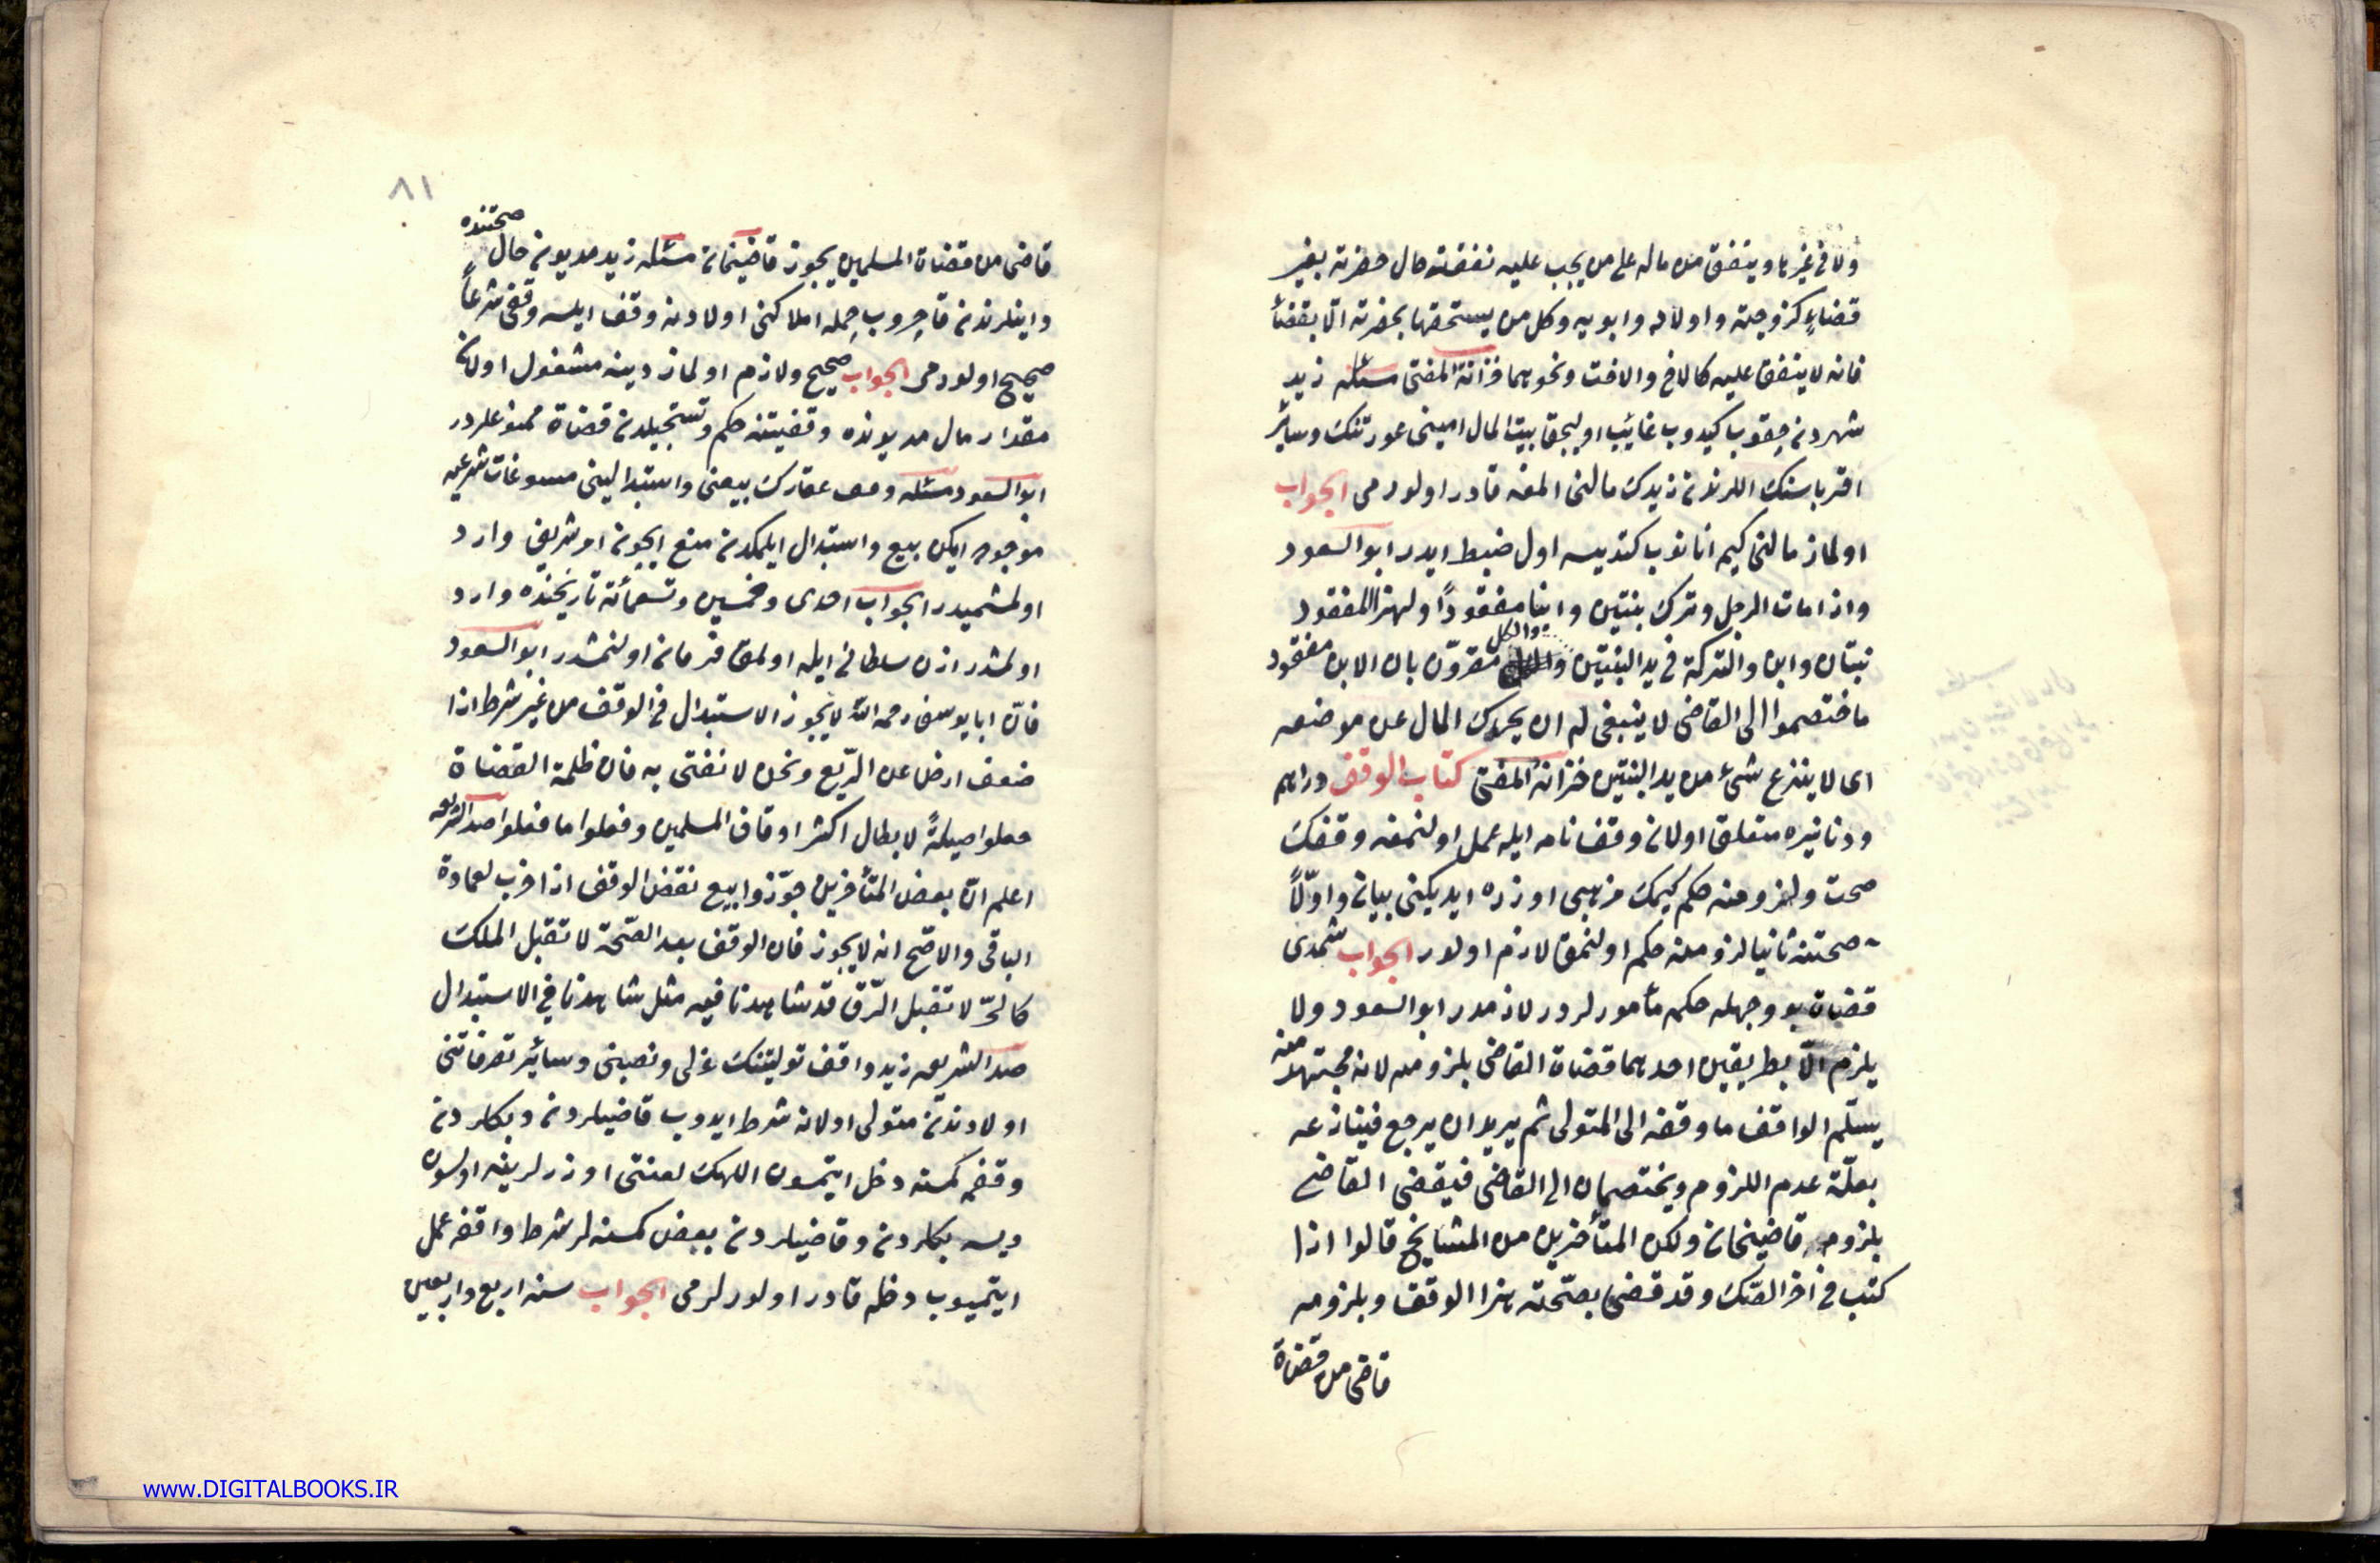 ولا في غيرها وينفق من ماله على من يجب عليه نفقته حال حضرته بغير
قضاء كزوجته واولاده وابويه وكل من يستحقها بحضرته الا بقضاء
فانه لا ينفق عليه كالاخ والاخت ونحوهما خزانة المفتى مسئله زيد
شهردن چقوب كيدوب غائب اوليجق بيت المال امينى عورتنك وسائر
اقرباسنك اللرندن زيدك مالنى المغه قادر اولورمى الجواب
اولماز مالنى كيم انانوب كتديسه اول ضبط ايدر ابو السعود
واذا مات الرجل وترك بنتين وابنا مفقودًا ولهذا المفقود
بنتان وابن والتركة فى يد البنتين والكل مقرون بان الابن مفقود
فاختصموا الى القاضى لا ينبغى له ان يحرك المال عن موضعه
اى لا ينزع شئ من يد البنتين خزانة المفتى كتاب الوقف دراهم
ودنانيره متعلق اولان وقفنامه ايله عمل اولنمغه وقفك
صحت ولزومنه حكم كيمك مذهبى اوزره ايديكنى بيان واولًا
صحتنه ثانيا لزومنه حكم اولنمق لازم اولور الجواب شمدى
قضات بو وجهله حكمه مأمورلردر لازمدر ابو السعود ولا
يلزم الا بطريقين احدهما قضاة القاضى بلزومه لانه مجتهد فيه
يسلم الواقف ما وقفه الى المتولى ثم يريد ان يرجع فينازعه
بعلة عدم اللزوم ويختصمان الى القاضى فيقضى القاضى
بلزومه قاضيخان ولكن المتأخرين من المشايخ قالوا اذا
كتب فى اخر الصك وقد قضى بصحته هذا الوقف وبلزومه
قاضى من قضاة
٨١
قاضى من قضاة المسلمين يجوز قاضيخان مسئله زيد مديون حال صحتنده
داينلرندن قاچروب جمله املاكنى اولادنه وقف ايلسه وقفى شرعاً
صحيح اولورمى الجواب صحيح ولازم اولماز دينه مشغول اولان
مقدار مال مديونده وقفيتنه حكم وتسجيلدن قضاة ممنوعلردر
ابو السعود مسئله وقف عقارك بيعنى واستبدالينى مسوغات شرعيه
موجود ايكن بيع واستبدال ايلمكدن منع ايچون امر شريف وارد
اولمشميدر الجواب احدى وخمسين وتسعمائة تاريخنده وارد
اولمشدر اذن سلطانى ايله اولمق فرمان اولنمشدر ابو السعود
فان ابا يوسف رحمه الله لا يجوز الاستبدال فى الوقف من غير شرط اذا
ضعف ارض عن الريع ونحن لا نفتى به فان ظلمة القضاة
جعلوا حيلةً لابطال اكثر اوقاف المسلمين وفعلوا ما فعلوا صدر الشريعه
اعلم ان بعض المتأخرين جوزوا بيع نقض الوقف اذا خرب لعمارة
الباقى والاصح انه لا يجوز فان الوقف بعد الصحة لا تقبل الملك
كالحر لا تقبل الرق قد شاهدنا فيه مثل شاهدنا فى الاستبدال
صدر الشريعه زيد واقف توليتنك عزلى ونصبنى وسائر تصرفاتنى
اولادندن متولى اولانه شرط ايدوب قاضيلردن وبكلردن
وقفمه كمسنه دخل ايتمسون اللهك لعنتى اوزرلرينه اولسون
ديسه بكلردن وقاضيلردن بعض كمسنه لر شرط واقفه عمل
ايتميوب دخله قادر اولورلرمى الجواب سنه اربع واربعين
www.DIGITALBOOKS.IR